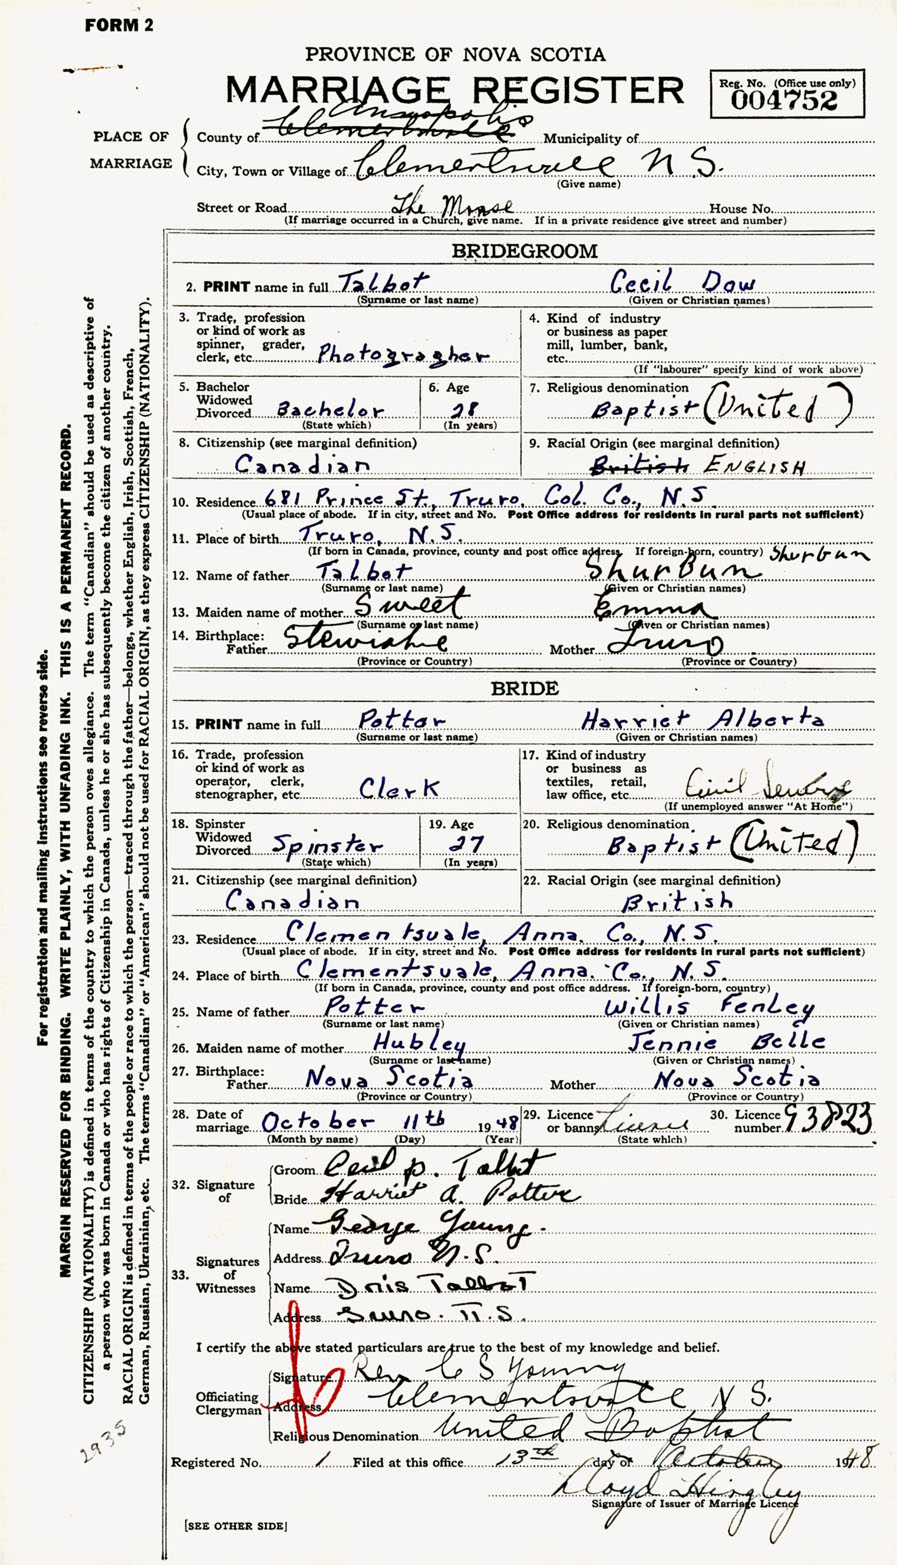 FORM 2
PROVINCE OF NOVA SCOTIA
MARRIAGE REGISTER
Reg. No. (Office use only)
004752
PLACE OF MARRIAGE
County of Clementsvale Annapolis Municipality of
City, Town or Village of Clementsvale N.S.
(Give name)
Street or Road The Manse House No.
(If marriage occurred in a Church, give name. If in a private residence give street and number)
BRIDEGROOM
2. PRINT name in full Talbot Cecil Dow
(Surname or last name) (Given or Christian names)
3. Trade, profession
or kind of work as
spinner, grader,
clerk, etc. Photographer
4. Kind of industry
or business as paper
mill, lumber, bank,
etc.
(If "labourer" specify kind of work above)
5. Bachelor
Widowed
Divorced Bachelor
(State which)
6. Age
28
(In years)
7. Religious denomination
Baptist (United)
8. Citizenship (see marginal definition)
Canadian
9. Racial Origin (see marginal definition)
British ENGLISH
10. Residence 681 Prince St., Truro, Col. Co., N.S
(Usual place of abode. If in city, street and No. Post Office address for residents in rural parts not sufficient)
11. Place of birth Truro, N.S.
(If born in Canada, province, county and post office address. If foreign-born, country) Shurbun
12. Name of father Talbot ShurBun
(Surname or last name) (Given or Christian names)
13. Maiden name of mother Sweet Emma
(Surname or last name) (Given or Christian names)
14. Birthplace:
Father Mother Truro
(Province or Country) (Province or Country)
BRIDE
15. PRINT name in full Potter Harriet Alberta
(Surname or last name) (Given or Christian names)
16. Trade, profession
or kind of work as
operator, clerk,
stenographer, etc. Clerk
17. Kind of industry
or business as
textiles, retail,
law office, etc. Civil Service
(If unemployed answer "At Home")
18. Spinster
Widowed
Divorced Spinster
(State which)
19. Age
27
(In years)
20. Religious denomination
Baptist (United)
21. Citizenship (see marginal definition)
Canadian
22. Racial Origin (see marginal definition)
British
23. Residence Clementsvale, Anna. Co., N.S.
(Usual place of abode. If in city, street and No. Post Office address for residents in rural parts not sufficient)
24. Place of birth Clementsvale, Anna. Co., N.S.
(If born in Canada, province, county and post office address. If foreign-born, country)
25. Name of father Potter Willis Fenley
(Surname or last name) (Given or Christian names)
26. Maiden name of mother Hubley Jennie Belle
(Surname or last name) (Given or Christian names)
27. Birthplace:
Father Nova Scotia Mother Nova Scotia
(Province or Country) (Province or Country)
28. Date of
marriage October 11th 1948
(Month by name) (Day) (Year)
29. Licence
or banns License
(State which)
30. Licence
number 93823
32. Signature of
Groom Cecil D. Talbot
Bride Harriet A. Potter
33. Signatures of Witnesses
Name George Young.
Address Truro N.S.
Name Doris Talbot
Address Truro. N.S.
I certify the above stated particulars are true to the best of my knowledge and belief.
Officiating Clergyman
Signature Rev C S Young
Address Clementsvale N S.
Religious Denomination United Baptist
Registered No. 1 Filed at this office 13th day of October 1948
Lloyd Hingley
Signature of Issuer of Marriage Licence
[SEE OTHER SIDE]
For registration and mailing instructions see reverse side.
MARGIN RESERVED FOR BINDING. WRITE PLAINLY, WITH UNFADING INK. THIS IS A PERMANENT RECORD.
CITIZENSHIP (NATIONALITY) is defined in terms of the country to which the person owes allegiance. The term "Canadian" should be used as descriptive of
a person who was born in Canada or who has rights of Citizenship in Canada, unless he or she has subsequently become the citizen of another country.
RACIAL ORIGIN is defined in terms of the people or race to which the person—traced through the father—belongs, whether English, Irish, Scottish, French,
German, Russian, Ukrainian, etc. The terms "Canadian" or "American" should not be used for RACIAL ORIGIN, as they express CITIZENSHIP (NATIONALITY).
2935